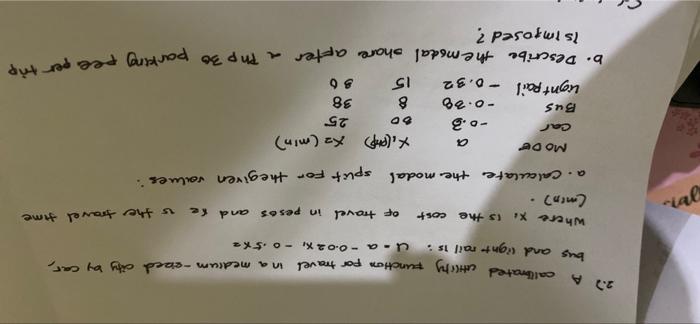 2.7 A calibrated utility function for travel in a medium-sized city by car,
bus and light rail is: U = a - 0.02X1 - 0.5X2
where X1 is the cost of travel in pesos and X2 is the travel time
(min).
a. Calculate the modal split for the given values:
MODE a X1(PhP) X2 (min)
car -0.3 30 25
Bus -0.38 8 38
Light rail -0.32 15 30
b. Describe the modal share after a Php 30 parking fee per trip
Is Imposed?